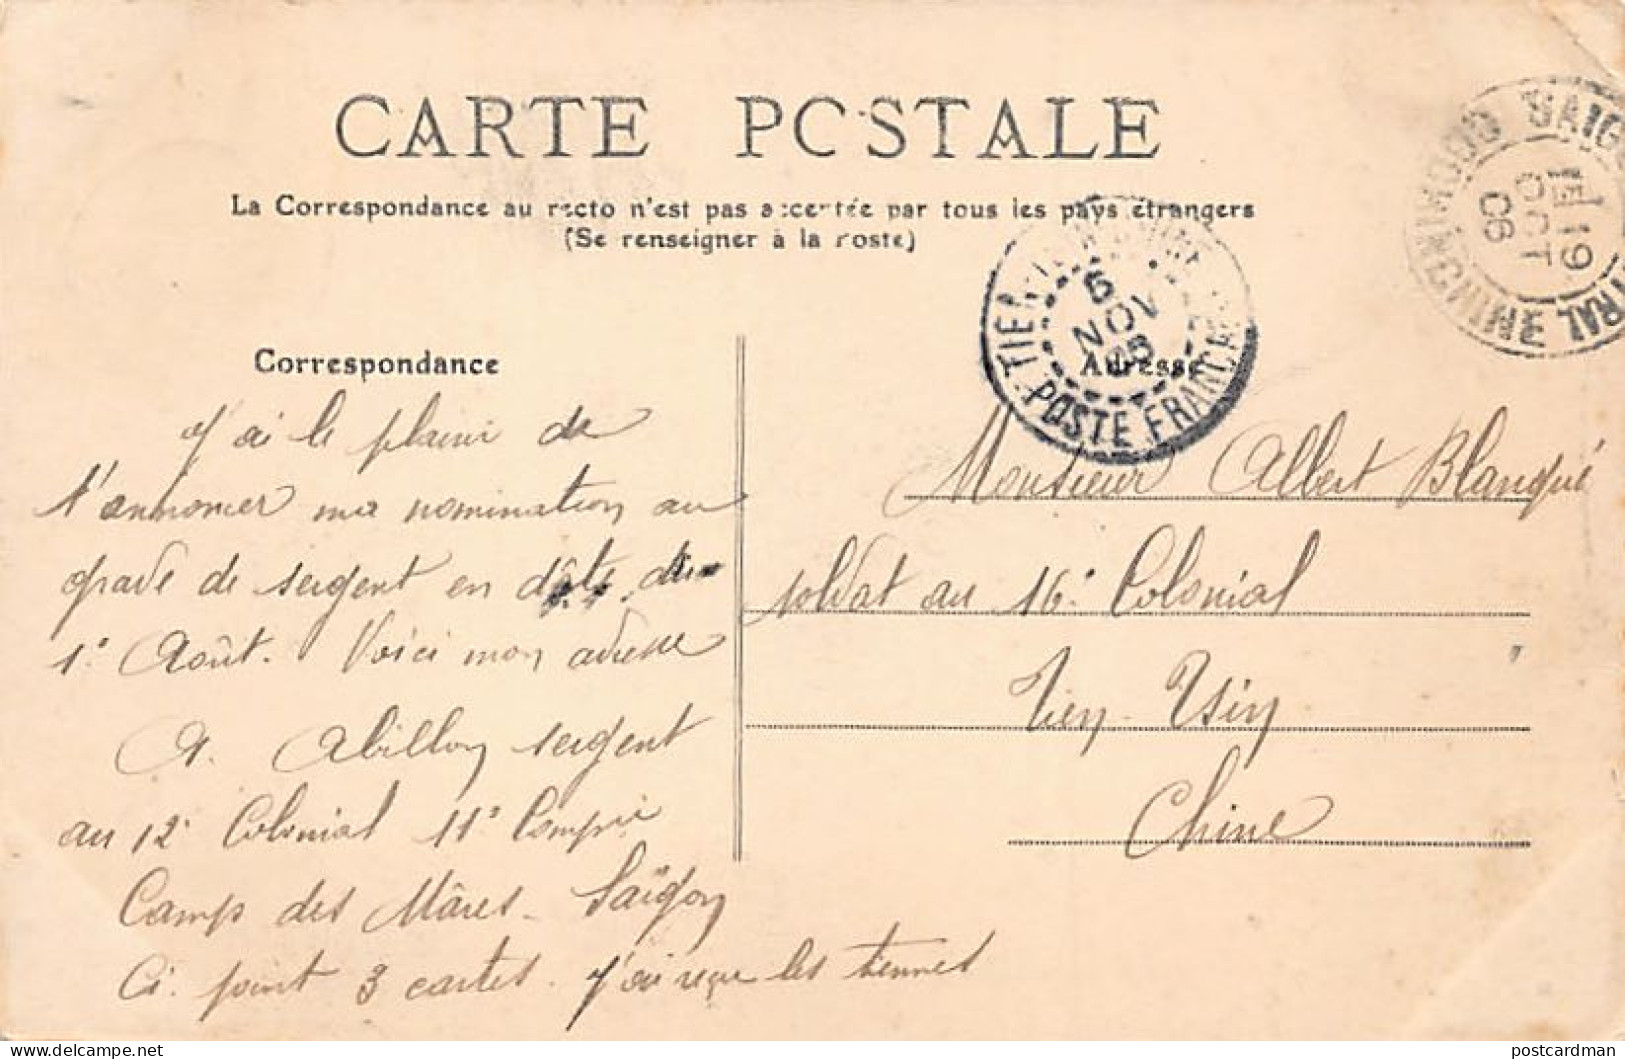 CARTE POSTALE
La Correspondance au recto n'est pas acceptée par tous les pays étrangers
(Se renseigner à la Poste)
SAIGON CENTRAL COCHINCHINE
19
OCT
06
TIEN-TSIN CHINE
5
NOV
06
POSTE FRANCAISE
Correspondance
J'ai le plaisir de
t'annoncer ma nomination au
grade de sergent en date du
1er Août. Voici mon adresse
A. Abillon sergent
au 12e Colonial 11e Compie
Camp des Mâres. Saïgon
Ci. joint 3 cartes. J'ai reçu les tiennes
Adresse
Monsieur Albert Blanqué
soldat au 16e Colonial
Tien-Tsin
Chine
postcardman